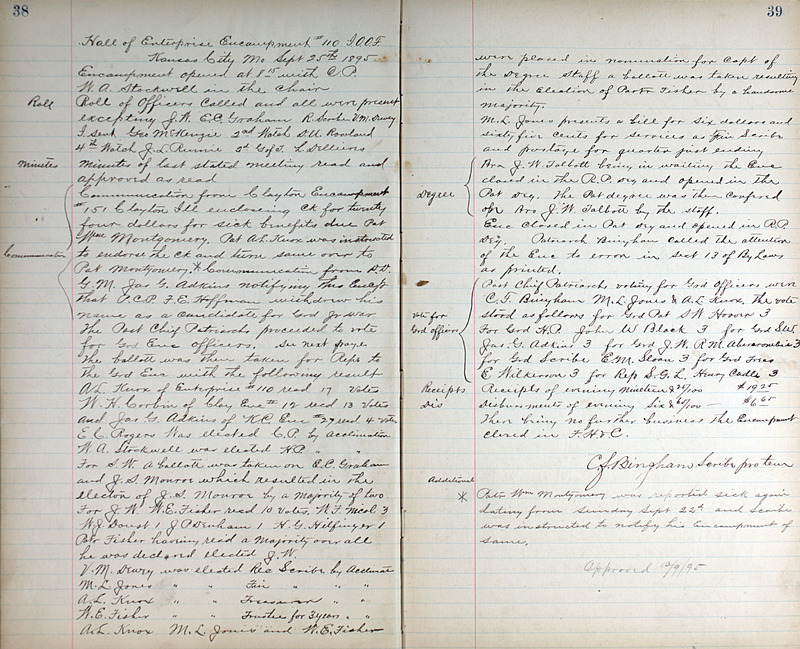 38
Hall of Enterprise Encampment # 110 I.O.O.F.
Kansas City Mo Sept 25th 1895
Encampment opened at 8 15 with C.P.
W.A. Stockwell in the Chair
Roll
Roll of Officers Called and all were present
excepting J.W. E.C. Graham R. Scribe V.M. Dewey
I. Sent. Geo McKenzie 2nd Watch D.U. Rowland
4th Watch J.L. Rennie
Minutes
Minutes of last stated meeting read and
approved as read
Communication
Communication form Clayton Encampment
# 151 Clayton Ill enclosing ck for twenty
four dollars for sick benefits due Pat
Wm Montgomery. Pat A.L. Knox was instructed
to endorse the ck and turn same over to
Pat Montgomery. * Communication form D.D.
G.M. Jas G. Adkins notifying this Encapt
that P.C.P. F.E. Hoffman withdrew his
name as a candidate for Grd Jr War
The Past Chief Patriarchs proceeded to vote
for Grd Enc officers. See next page
The ballott was then taken for Reps to
the Grd Enc with the following result
A.L. Knox of Enterprise # 110 recd 17 Votes
W.H. Corbin of Clay Enc # 12 recd 13 Votes
and Jas G. Adkins of K.C. Enc # 29 recd 4 votes
E.C. Rogers Was elected C.P. by acclimation
W.A. Stockwell was elected H.P. " "
For S.W. a ballott was taken on E.C. Graham
and J.S. Monroe which resulted in the
election of J.S. Monroe by a majority of two
For J.W. W.E. Fisher recd 10 Votes, W.F. Nicol 3
W.J. Doust 1 J.P. Denham 1 H.G. Hilfinger 1
Patr Fisher having recd a Majority over all
he was declared elected J.W.
V.M. Dewey was elected Rec Scribe by Acclimate
M.L. Jones " " Fin " " "
A.L. Knox " " Treasurer " "
W.E. Fisher " " Trustee for 3 years " "
A.L. Knox M.L. Jones and W.E. Fisher
39
were placed in nomination for Capt of
the Degree Staff a ballott was taken resulting
in the Election of Patr Fisher by a handsome
majority.
M.L. Jones presents a bill for six dollars and
sixty five cents for services as Fin Scribe
and postage for quarter just ending
Degree
Bro J.W. Talbott being in waiting the Enc
closed in the R.P. Deg and opened in the
Pat Deg. The Pat degree was then confered
on Bro J.W. Talbott by the staff.
Enc closed in Pat Deg and opened in R.P.
Deg. Patriarch Bingham called the attention
of the Enc to error in Sect 13 of By Laws
as printed.
Vote for
Grd officers
Past Chief Patriarchs voting for Grd Officers were
C.J. Bingham M.L. Jones & A.L. Knox. The vote
stood as follows for Grd Pat S.W. Hoover 3
For Grd H.P. John W Black 3 for Grd S.W.
Jas G. Adkins 3 for Grd J.W. R.M. Abercrombie 3
for Grd Scribe E.M. Sloan 3 for Grd Treas
E. Wilkerson 3 for Rep S.G.L. Henry Cadle 3
Receipts
Receipts of evening Nineteen & 25/100 $19.25
Dis
Disbursments of evening Six & 65/100 $6.65
There being no further business the Encampment
closed in F.H & C.
C.J. Bingham Scribe pro tem
Additional
* Patr Wm Montgomery was reported sick again
dating from Sunday Sept 22nd and Scribe
was instructed to notify his Encampment of
same.
Approved 10/9/95